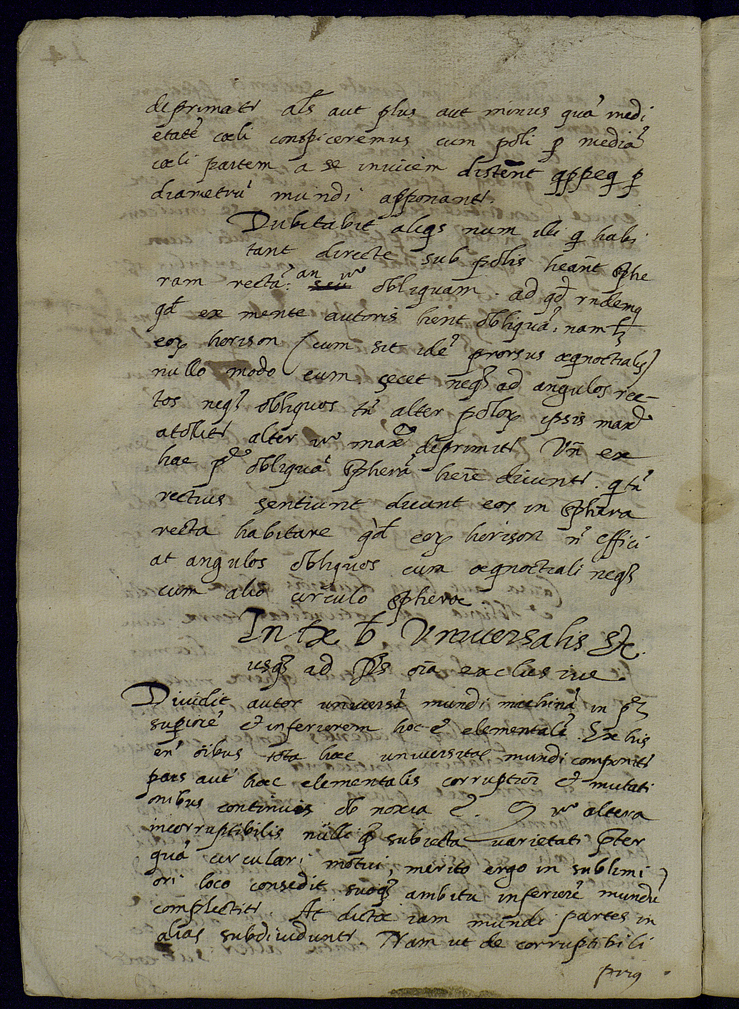 deprimatr als aut plus aut minus quā medi
etatē cœli conspiceremus cum poli p mediā
cœli partem a se invicem distent qppe q p
diametrū mundi apponantr.
Dubitabit aliqs num illi q habi
tant directe sub polis heant sphe
ram rectā: an vº obliquam. ad qd rndemq
qd ex mente autoris hent obliquā; nam
eoꝝ horison (cum sit idē prorsus æqnoctialis)
nullo modo eum secet neqꝫ ad angulos rec-
tos neqꝫ obliquos tn alter poloꝝ ipsis maxe
atollitr alter vº maxe deprimitr Vn ex
hac pte obliquā spherā here dicuntr. q tn
rectius sentiunt dicant eos in sphæra
recta habitare qd eoꝝ horison n effici
at angulos obliquos cum æqnoctiali neqꝫ
cum alio circulo spheræ
In tx b Universalis &c.
usqꝫ ad oīa exclusive.
Dividit autor universā mundi machinā in
supiorē et inferiorem hoc ē elementalē. Ex his
en oibus tota hæc universitas mundi componitr
pars aut hæc elementalis corruption et mutati
onibus continuis ob noxia ē. vº altera
incorruptibilis nulli q subiecta varietati pter
quā circulari motui, merito ergo in sublimi
ori loco consedit suoqꝫ ambitu inferiorē mundū
complectitr. At dictæ iam mundi partes in
alias subdividuntr. Nam ut de corruptibili
priq